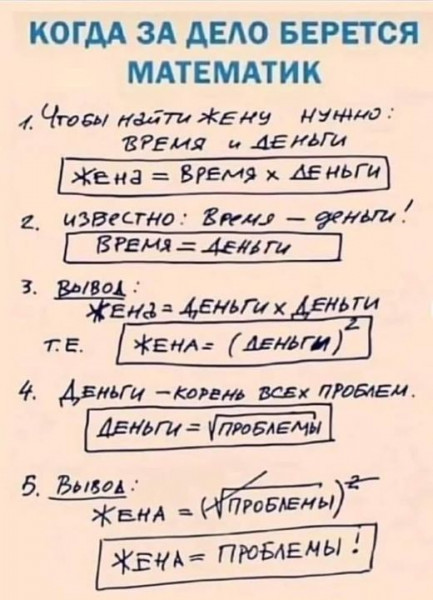 КОГДА ЗА ДЕЛО БЕРЕТСЯ
МАТЕМАТИК
1. Чтобы найти жену нужно:
время и деньги
Жена = время х деньги
2. Известно: Время – деньги!
Время = деньги
3. Вывод:
Жена = деньги х деньги
т.е. Жена = (деньги)²
4. Деньги – корень всех проблем.
Деньги = √проблемы
5. Вывод:
Жена = (√проблемы)²
Жена = проблемы!